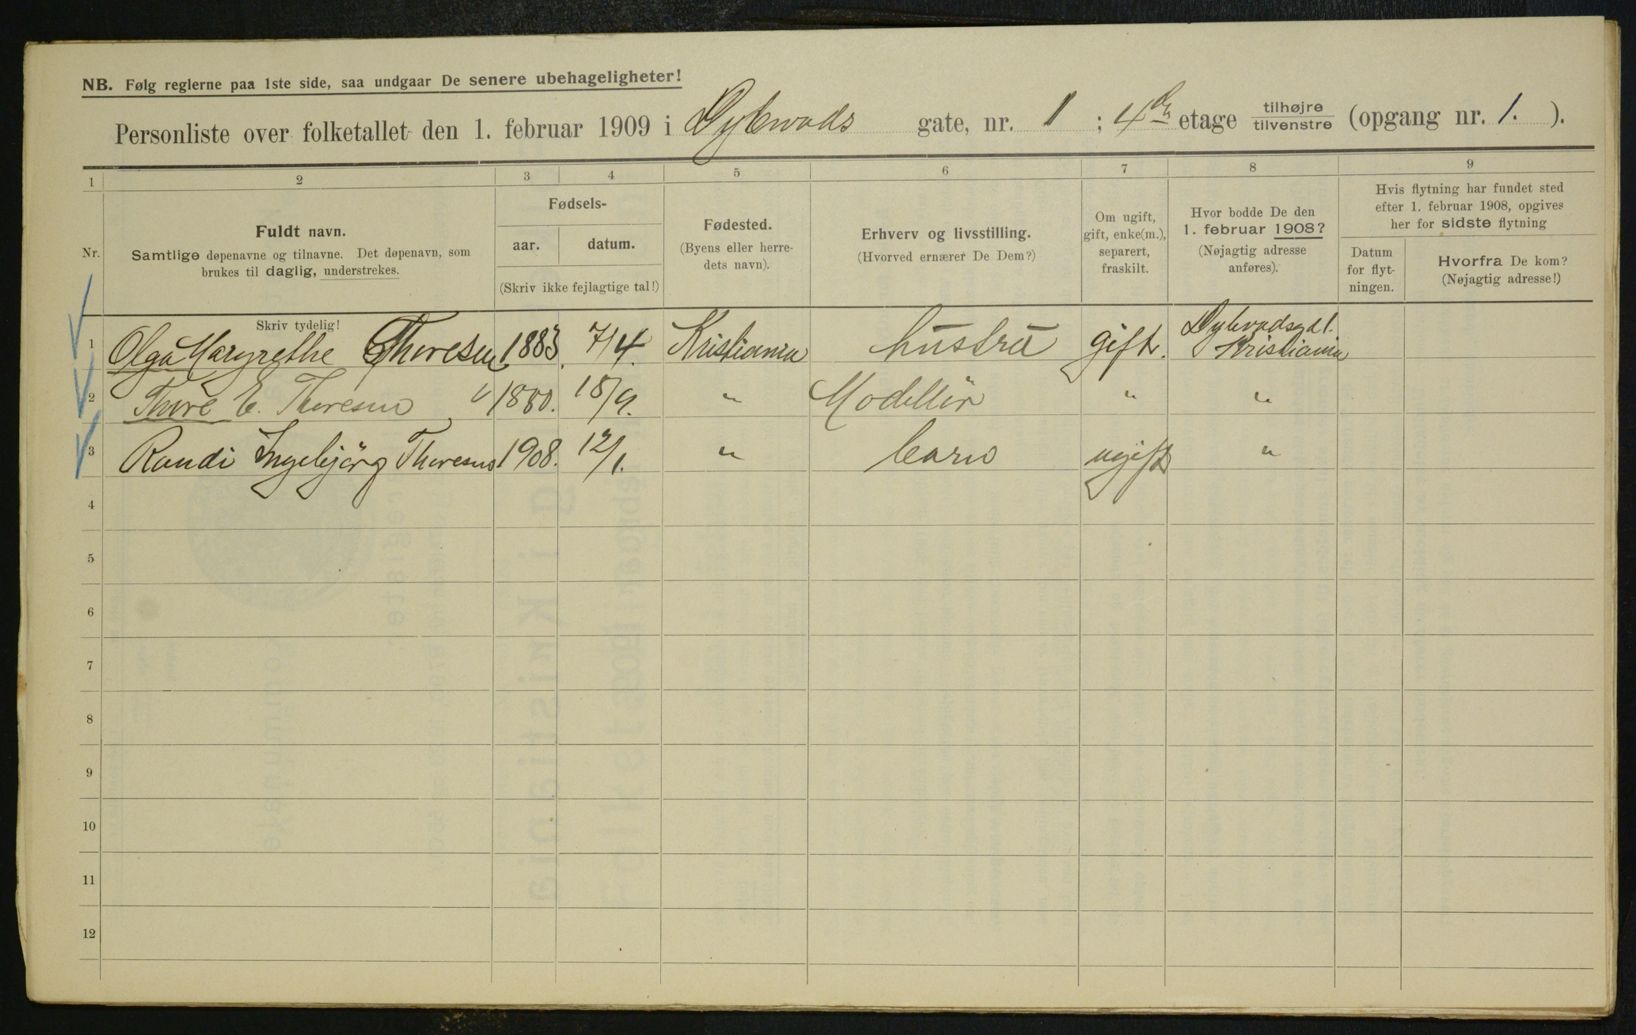 NB. Følg reglerne paa 1ste side, saa undgaar De senere ubehageligheter!
Personliste over folketallet den 1. februar 1909 i Dybwads gate, nr. 1 ; 4de etage tilhøjre tilvenstre (opgang nr. 1. ).
1 2 3 4 5 6 7 8 9
Nr.
Fuldt navn.
Samtlige døpenavne og tilnavne. Det døpenavn, som
brukes til daglig, understrekes.
Fødsels-
aar. datum.
(Skriv ikke fejlagtige tal!)
Fødested.
(Byens eller herre-
dets navn).
Erhverv og livsstilling.
(Hvorved ernærer De Dem?)
Om ugift,
gift, enke(m.),
separert,
fraskilt.
Hvor bodde De den
1. februar 1908?
(Nøjagtig adresse
anføres).
Hvis flytning har fundet sted
efter 1. februar 1908, opgives
her for sidste flytning
Datum
for flyt-
ningen.
Hvorfra De kom?
(Nøjagtig adresse!)
Skriv tydelig!
1 Olga Margrethe Thoresen 1883. 7/4. Kristiania hustru gift. Dybvadsgd 1. Kristiania
2 Thore E. Thoresen " 1880. 18/9. " Modellör " "
3 Randi Ingebjörg Thoresen 1908. 12/1. " barn ugift "
4
5
6
7
8
9
10
11
12